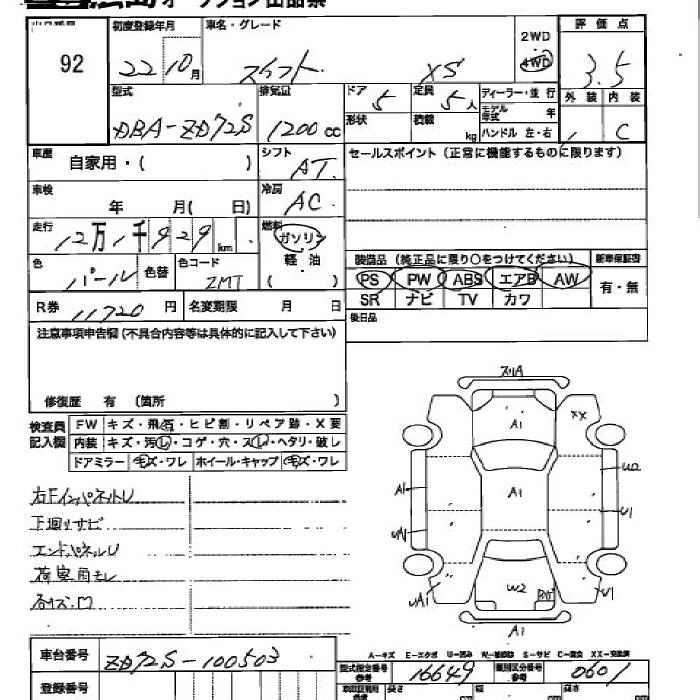 オークション出品票
出品番号
92
初度登録年月
22 10月
車名・グレード
スイフト XS
2WD
4WD
評価点
3.5
型式
DBA-ZD72S
排気量
1200cc
ドア
5
形状
定員
5人
積載
kg
ディーラー・並行
モデル年式 年
ハンドル 左・右
外装 内装
C
車歴
自家用・( )
シフト
AT
セールスポイント(正常に機能するものに限ります)
車検
年 月( 日)
冷房
AC
走行
12万1千929km
燃料
ガソリン
軽・油
( )
色
パール
色替
色コード
ZMT
装備品(純正品に限り○をつけてください)
新車保証書
PS PW ABS エアB AW
SR ナビ TV カワ
有・無
R券 11720円
名変期限 月 日
後日品
注意事項申告欄(不具合内容等は具体的に記入して下さい)
修復歴 有 (箇所 )
検査員記入欄
FW キズ・飛石・ヒビ割・リペア跡・X要
内装 キズ・汚レ・コゲ・穴・スレ・ヘタリ・破レ
ドアミラー キズ・ワレ ホイール・キャップ キズ・ワレ
右FインパネルU
下廻りサビ
エンドパネルU
スリA
A1
XX
A1
A1
U2
U1
A1
W2
A1
A-キズ E-エクボ U-凹み W-補修跡 S-サビ C-腐食 XX-交換済
車台番号
ZD72S-100503
型式指定番号
参考
16649
類別区分番号
参考
0601
登録番号
長さ
幅
高さ